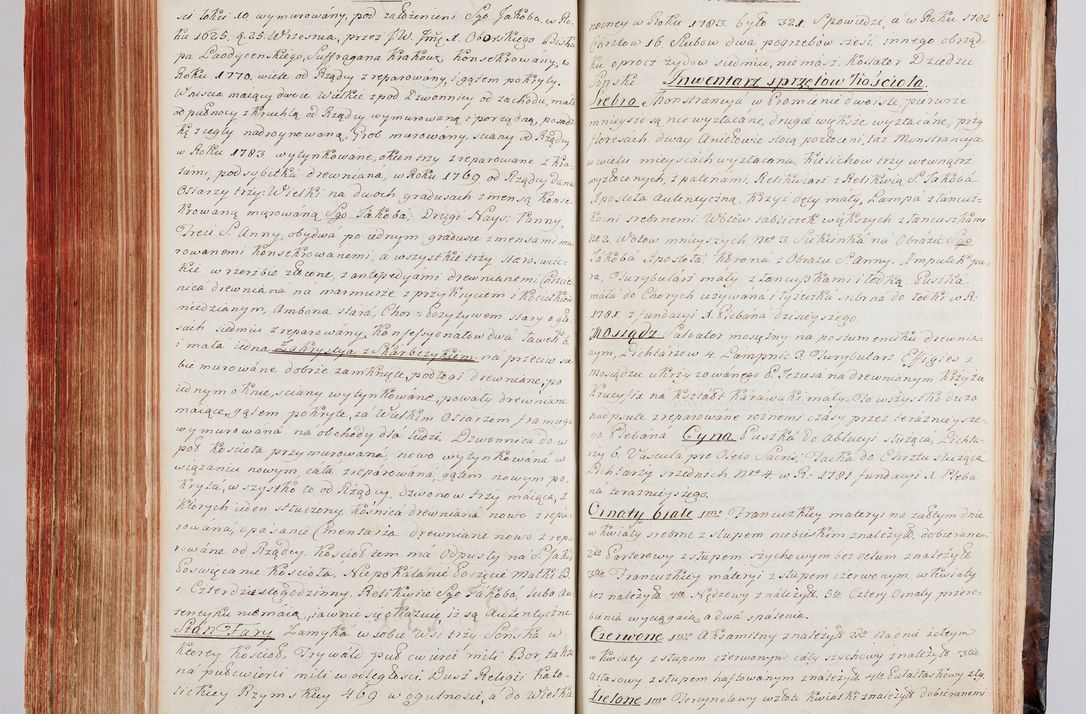 ści łokci 10, wymurowany, pod założeniem Sgo Jakoba, w Ro-
ku 1625, d. 25. Września, przez J.W. Jmć X. Oborskiego Bisku
pa Laodyceńskiego, Suffragana Krakow: Konsekrowany, w
Roku 1770. wiele od Rządcy zreparowany, i gątem pokryty.
Wniścia maiący dwoie Wielkie z pod Dzwonnicy od zachodu, małe
od pułnocy z kruchtą od Rządcy wymurowaną i porządną, posadz
kę z cegły nadroynowaną, Grob murowany, sciany od Rządcy
w Roku 1783. wytynkowane, okien trzy zreparowane z kra-
tami, podsybitki drewniana, w Roku 1769 od Rządcy dana
Ołtarzy trzy: Wielki na dwoch gradusach z mensą Konse-
krowaną murowaną Sgo Jakoba. Drugi Nays: Panny,
Trzeci S. Anny, obydwa po iednym gradusie z mensami mu
rowanemi Konsekrowanemi, a wszystkie trzy staroświec-
kie w rzezbie złocone, z antepedyami drewnianemi, Chrzciel
nica drewniana na marmurze z przykryciem i Kociołkiem
miedzianym, Ambona stara, Chor z Pozytywem stary o gło-
sach siedmiu zreparowany, Konfessyonałow dwa Ławek 6.
i mała iedna Zakrystya z Skarbczykiem na przeciw sie
bie murowane dobrze zamknięte, podłogi drewniane, po
iednym oknie, sciany wytynkowane, powały drewniane
maiące, gątem pokryte, za Wielkim Ołtarzem framuga
wymurowana na obchody dla ludzi. Dzwonnica do w
poł Kościoła przymurowana, nowo wytynkowana w
wiązaniu nowym cała zreparowana, gątem nowym po-
kryta, w szystko to od Rządcy, dzwonow trzy maiąca, z
których ieden stłuczony, kośnica drewniana nowo zrepa-
rowana, opasanie Cmentarza drewniane nowo zrepa
rowane od Rządcy. Kościoł ten ma Odpusty na S. Jakub
Poswięcanie Kościoła, Niepokalane Poczęcie Matki B.
i Czterdziestogodzinny. Relikwie Sgo Jakoba, lubo Au-
tentyku niemaią, jawnie się okazuie iż są Autentyczne
Stan Fary Zamyka w sobie Wsi trzy Ponska w
ktorey Kościoł, Trywałd puł cwierci mili Bor, także
na pubcwierci mili w odległości Dusz Religii Kato-
lickiey Rzymskiey 469 w ogulności, a do Wielka
nocney w Roku 1783. było 321. Spowiedzi, a w Roku 1782
Chrztow 16. Slubow dwa pogrzebow sześć innego obrząd-
ku oprocz żydow siedmiu, niemasz, Kollator Dziedzic
Ponski. Inwentarz sprzętow Kościoła
Srebro, Monstrancya w Promienie dwoiste, pierwsze
mnieysze są nie wyzłacane, drugie wyksze wyzłacane, przy
floresach dway Aniołowie stoią pozłoceni, taż Monstrancya
w wielu mieyscach wyzłacana, Kielichow trzy wewnątrz
wyzłoconych, z patenami, Relikwiarz z Relikwią S. Jakoba
Apostoła autentyczną, Krzyż ręcy mały, Lampa z łancusz-
kami srebrnemi Wotow tabliczek większych z łancuszkami
no 2, Wotow mnieyszych Nro 3. Sukienka na Obrazie Sgo
Jakoba Apostoła, Korona z Obrazu S. Anny, Ampułek pa-
ra, Turybularz mały z łancuszkami i łodką, Puszka
mała do Chorych używana i łyżeczka srebrna do łodki w R.
1781. z fundacyi X. Plebana dzisieyszego.
Mosiądz Salvator mosiężny na postumenciku drewnia-
nym, Lichtarzow 4. Lampnic 3. Turybularz Effigies z
mosiądzu ukrzyżowanego P. Jezusa na drewnianym Krzyżu
Krucyfix na kształt karawaki mały. To wszystko dużo
nadpsute zreparowane rożnemi czasy przez teraznieysze-
go Plebana Cyna Puszka do ablucyi służąca, Lichta-
rzy 6. Vascula pro Oleis Sacris, Tacka do Chrztu służąca
Lichtarzy srzednich Nro 4. w R. 1781 fundacyi X. Pleba
na teraznieyszego.
Ornaty białe 1mo Francuzkiey materyi na żołtym dnie
w kwiaty srebrne z słupem niebieskim z należyt. dobieranemi
2do Parterowy z słupem szychowym bez velum z należyt.
3tio Francuzkiey materyi z słupem czerwonym, w kwiaty
bez należyt. 4to Nędzowy z należyt. 5to Cztery Ornaty przero-
bienia wyciągaią a dwa spalenia.
Czerwone 1mo Aksamitny z należyt. 2do na dnie żołtym
w kwiaty z słupem czerwonym cały szychowy z należyt. 3tio
Atłasowy z słupem haftowanym z należyt. 4to
Zielone 1mo Tercynelowy w złote kwiatki z należyt. dobieranemi